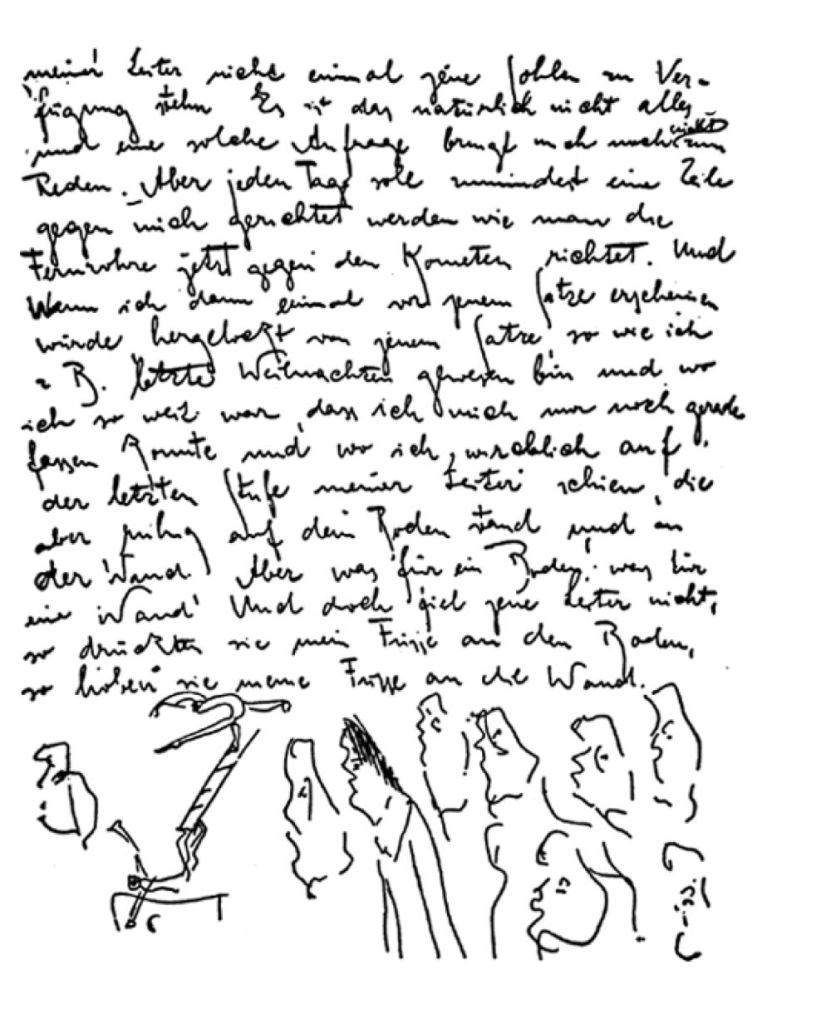 meiner Leiter nicht einmal jene Sohlen zur Ver-
fügung stehn Es ist das natürlich nicht alles
und eine solche Anfrage bringt mich noch nicht zum
Reden. Aber jeden Tag soll zumindest eine Zeile
gegen mich gerichtet werden wie man die
Fernrohre jetzt gegen den Kometen richtet. Und
Wenn ich dann einmal vor jenem Satze erscheinen
würde hergelockt von jenem Satze, so wie ich
z B. letzte Weihnachten gewesen bin und wo
ich so weit war, dass ich mich nur noch gerade
fassen konnte und wo ich wirklich auf
der letzten Stufe meiner Leiter schien, die
aber ruhig auf dem Boden stand und an
der Wand. Aber was für ein Boden, was für
eine Wand! Und doch fiel jene Leiter nicht,
so drückten sie meine Füsse an den Boden,
so hoben sie meine Füsse an die Wand.